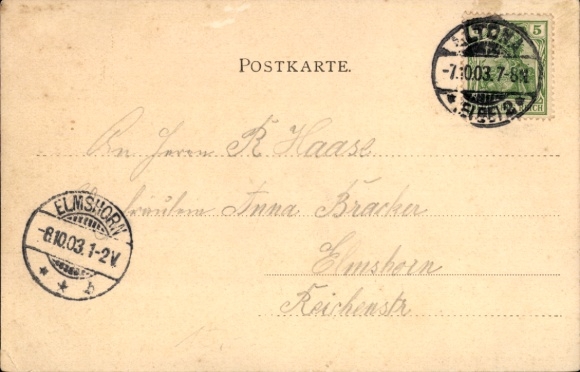 POSTKARTE.
5
ALTONA
-7.10.03. 7-8N.
(ELBE) 2
An Herrn R Haase
Fräulein Anna Bracker
Elmshorn
Reichenstr
ELMSHORN
-8.10.03. 1-2V.
* * b